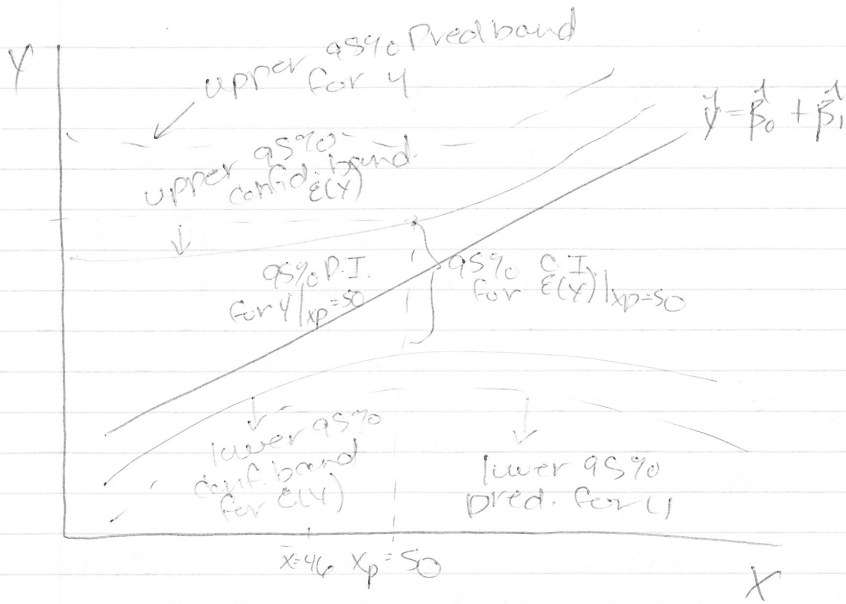 Y
upper 95% Pred band
for y
ŷ = β̂₀ + β̂₁
upper 95%
confid. band
E(Y)
95% P.I.
for y|xp=50
95% C.I.
for E(Y)|xp=50
lower 95%
conf. band
for E(Y)
lower 95%
pred. for y
x̄=46 xp=50
X